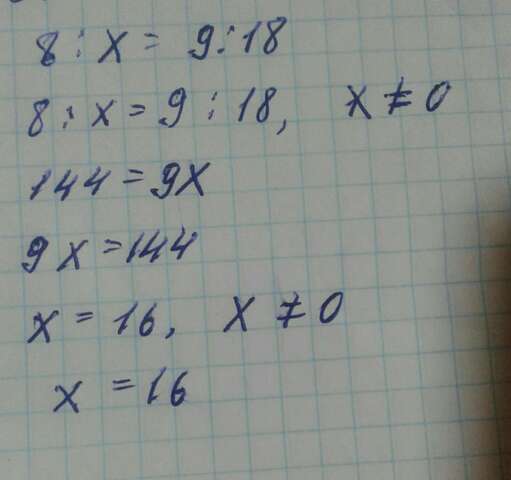 8 : x = 9 : 18
8 : x = 9 : 18, x ≠ 0
144 = 9x
9x = 144
x = 16, x ≠ 0
x = 16